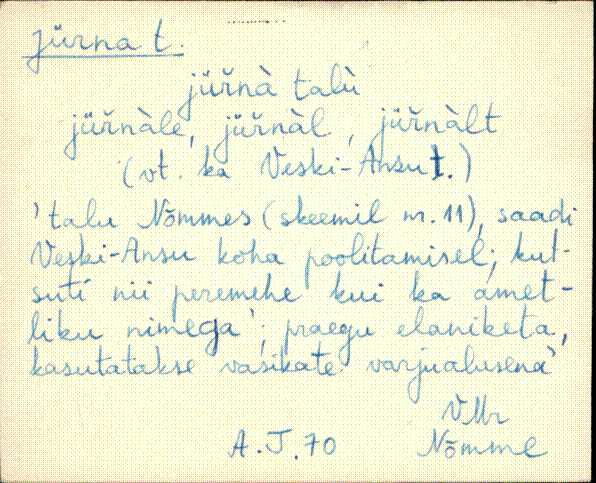 jürna t.
jüřnà talù
jüřnàle, jüřnàl, jüřnàlt
(vt. ka Veski-Ansu t.)
'talu Nõmmes (skeemil nr. 11), saadi
Veski-Ansu koha poolitamisel; kut-
suti nii peremehe kui ka amet-
liku nimega'; praegu elaniketa,
kasutatakse vasikate varjualusena'
VMr
A.J. 70 Nõmme